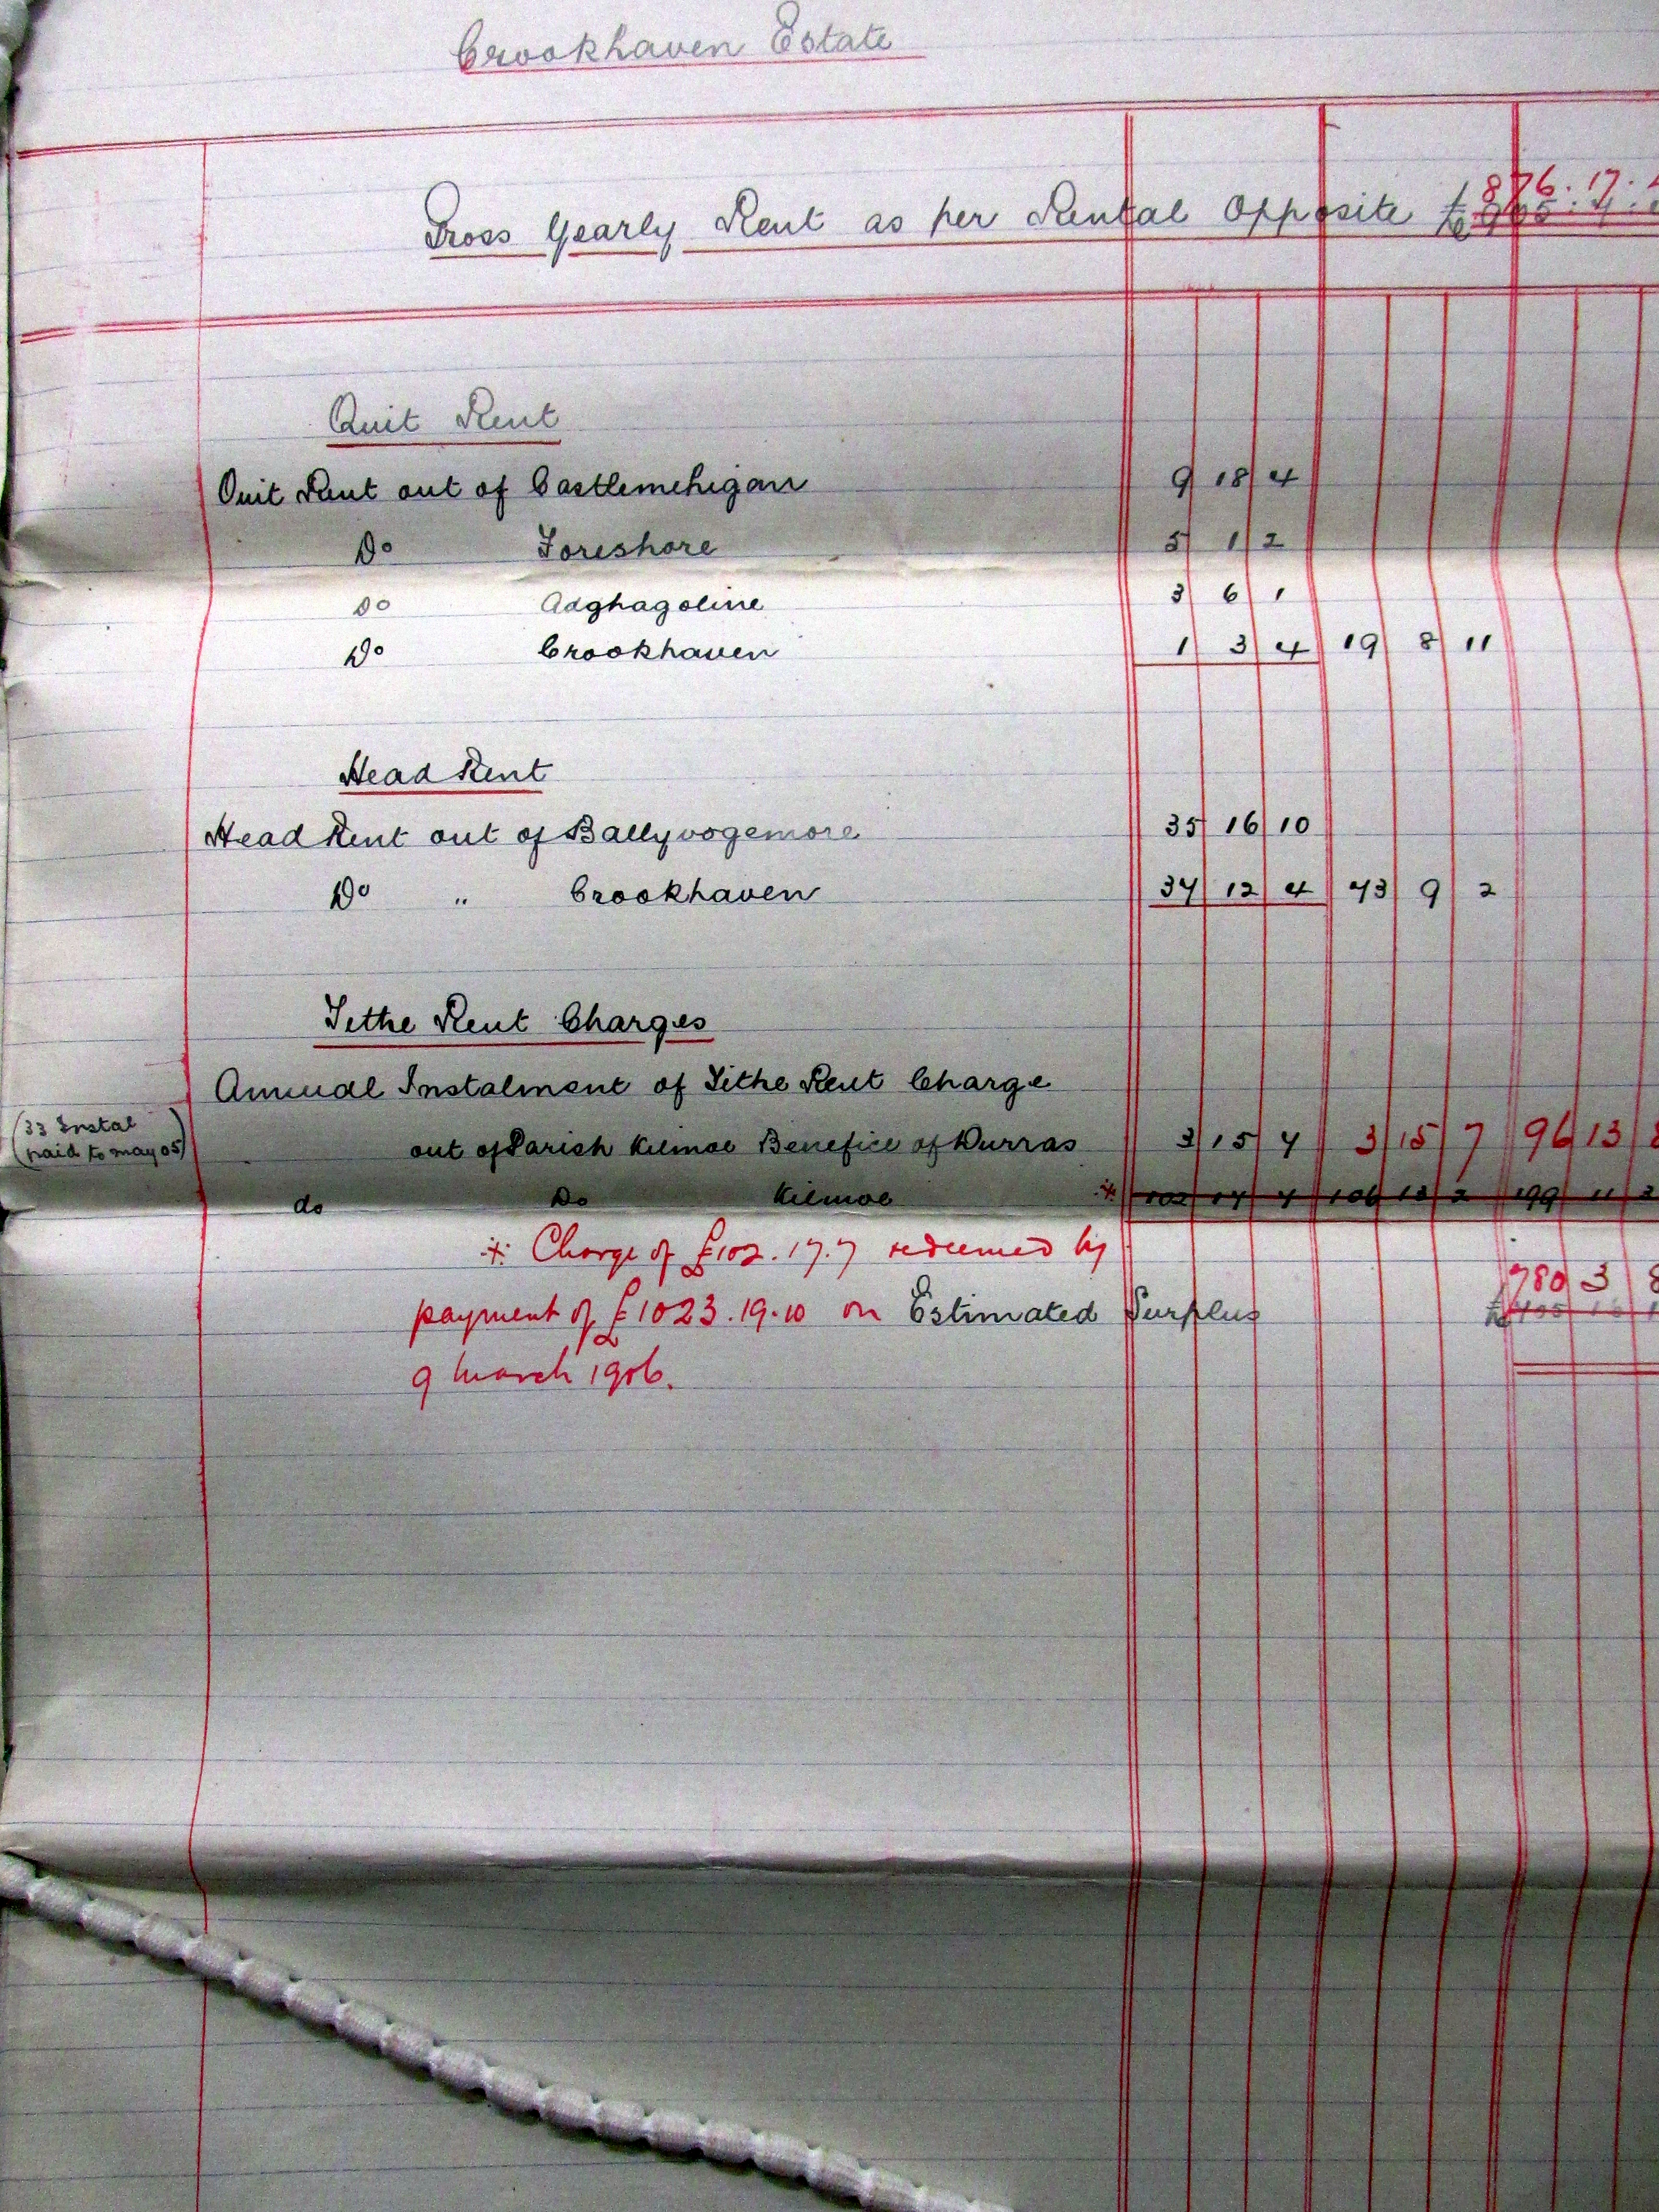 Crookhaven Estate
Gross Yearly Rent as per Rental Opposite £ 876 . 17 .
Quit Rent
Quit Rent out of Castlemehigan 9 18 4
Do Foreshore 5 1 2
Do Adghagoline 3 6 1
Do Crookhaven 1 3 4 19 8 11
Head Rent
Head Rent out of Ballyvogemore 35 16 10
Do " Crookhaven 37 12 4 73 9 2
Tithe Rent Charges
Annual Instalment of Tithe Rent Charge
(33 Instal
paid to may 05)
out of Parish Kilmoe Benefice of Durras 3 15 7 3 15 7 96 13 8
do Do Kilmoe * 102 17 7 106 13 2 199 11
* Charge of £102.17.7 redeemed by
780 3 8
payment of £1023.19.10 on Estimated Surplus
9 March 1906.